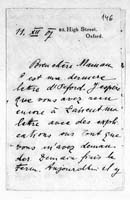 146
11. XII 07
82, High Street,
Oxford.
Bien chère Maman
C'est ma dernière
lettre d'Oxford. J'espère
que vous avez reçu
encore à
lettre avec des expli-
cations sur l'argent que
vous m'avez demandé
dès Demain
Aujourd'hui il y